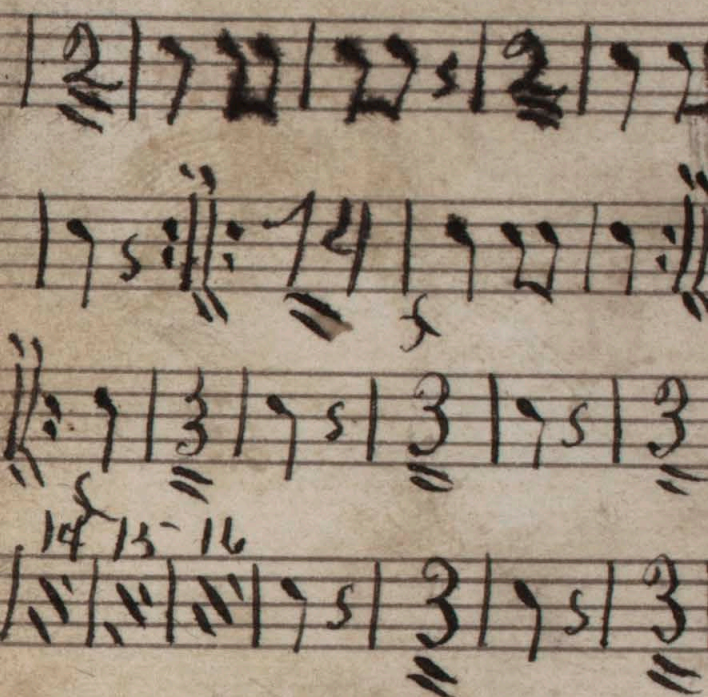 2 2
14
f
3 3 3
f
14 15 16
3 3